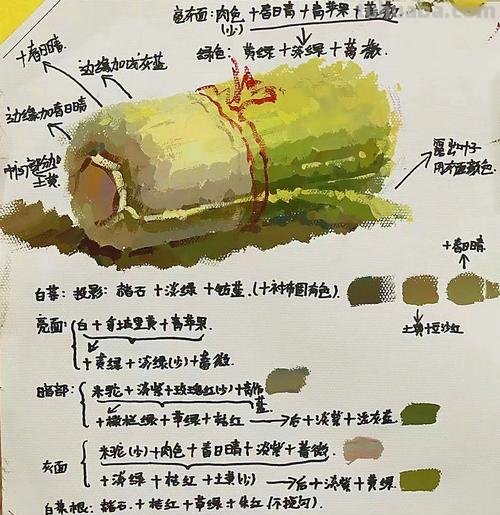 亮布面：肉色 + 春日青 + 青苹果 + 蔷薇
(少)
绿色：黄绿 + 淡绿 + 蔷薇.
+ 春日晴
边缘加浅灰蓝
边缘加春日晴
中间部分加
土黄
露出叶子
同布面颜色.
+春日晴
白菜：投影：赭石 + 淡绿 + 钴蓝.(+衬布固有色).
土黄+豆沙红
亮面：白 + 那坡里黄 + 青苹果.
+ 黄绿 + 淡绿(少) + 蔷薇.
暗部：朱驼 + 淡紫 + 玫瑰红(少) + 青作
蓝
+ 橄榄绿 + 草绿 + 桔红 → 后 + 淡紫 + 浅灰蓝
灰面
朱驼(少) + 肉色 + 春日晴 + 淡紫 + 蔷薇.
+ 淡绿 + 桔红 + 土黄(少) → 后 + 淡紫 + 黄绿.
白菜根：赭石. + 桔红 + 草绿 + 朱红(不搅匀).